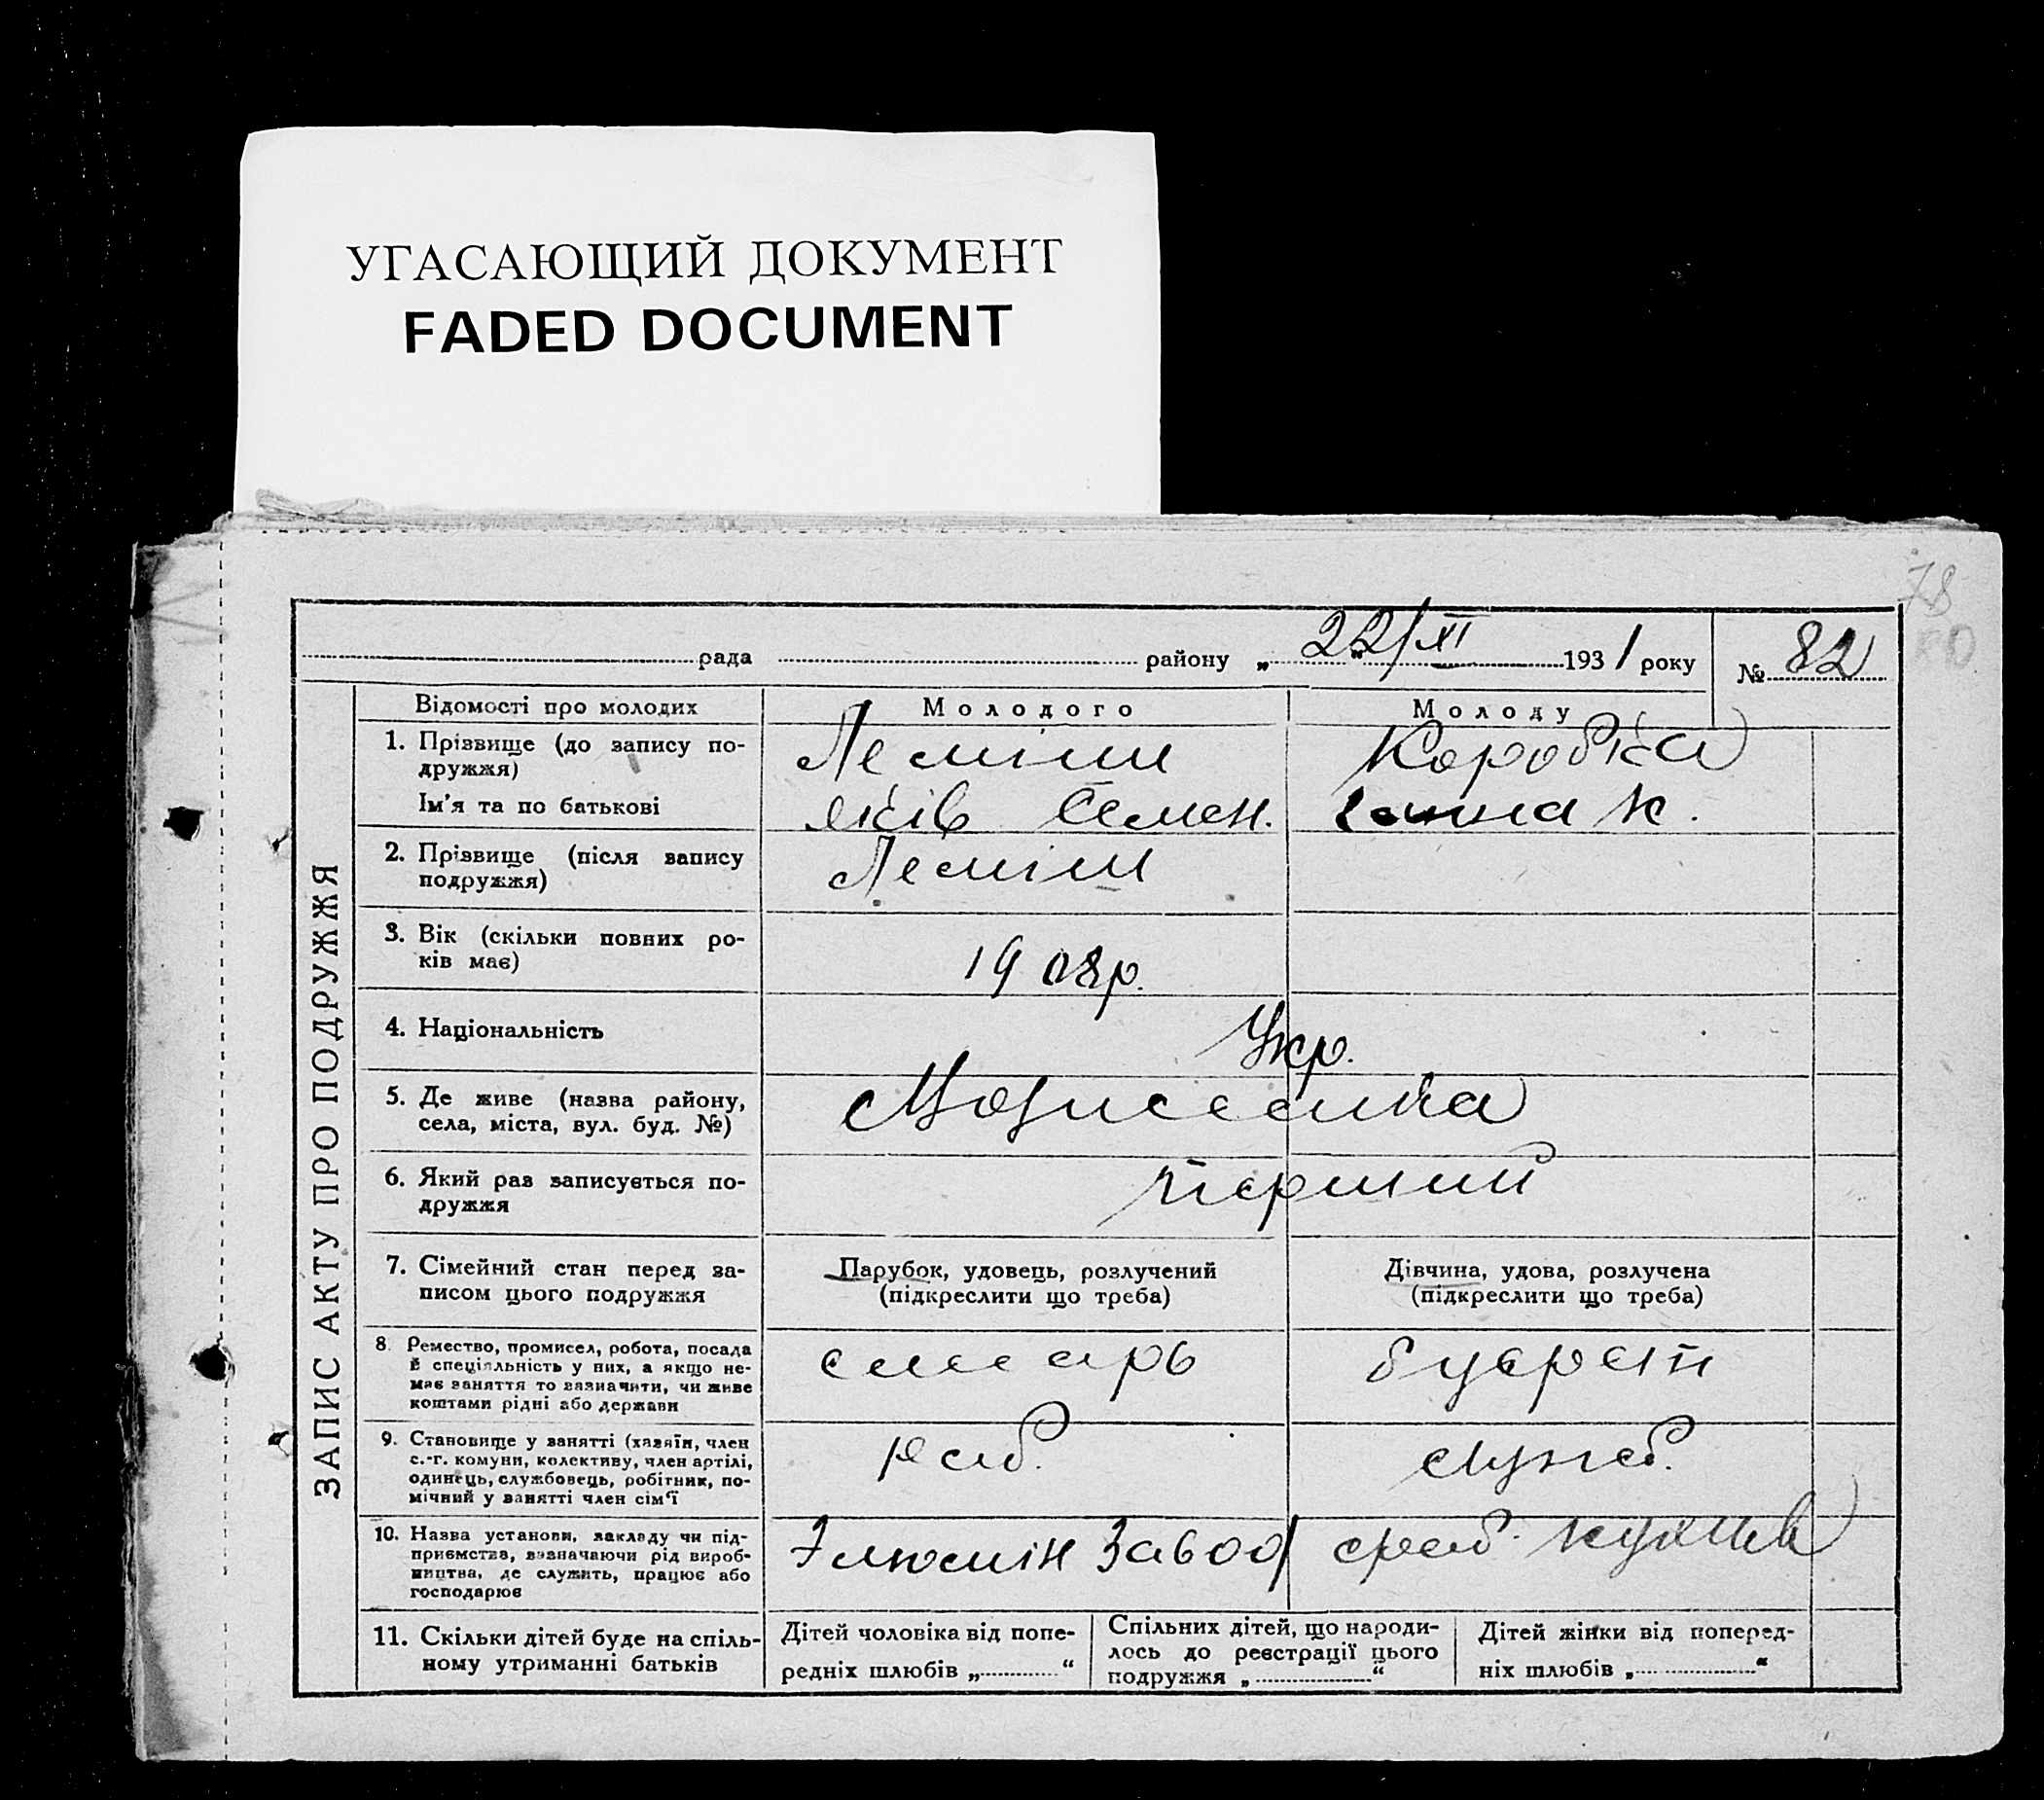 УГАСАЮЩИЙ ДОКУМЕНТ
FADED DOCUMENT
78
рада района „ 22/XI 1931 року № 82
ЗАПИС АКТУ ПРО ПОДРУЖЖЯ
Відомості про молодих
Молодого
Молоду
1. Прізвище (до запису по-
дружжя)
Леміш
Коробка
Ім'я та по батькові
Яків Семен.
Ганна К.
2. Прізвище (після запису
подружжя)
Леміш
3. Вік (скільки повних ро-
ків має)
1908р.
4. Національність
Укр.
5. Де живе (назва району,
села, міста, вул. буд. №)
6. Який раз записується по-
дружжя
перший
7. Сімейний стан перед за-
писом цього подружжя
Парубок, удовець, розлучений
(підкреслити що треба)
Дівчина, удова, розлучена
(підкреслити що треба)
8. Ремество, промисел, робота, посада
й спеціяльність у них, а якщо не-
має заняття то зазначити, чи живе
коштами рідні або держави
слесарь
9. Становище у занятті (хазяїн, член
с.-г. комуни, колективу, член артілі,
одинець, службовець, робітник, по-
мічний у занятті член сім'ї
Раб.
служб.
10. Назва установи, закладу чи під-
приємства, зазначаючи рід вироб-
ництва, де служить, працює або
господарює
завод
11. Скільки дітей буде на спіль-
ному утриманні батьків
Дітей чоловіка від попе-
редніх шлюбів „ “
Спільних дітей, що народи-
лось до реєстрації цього
подружжя „ “
Дітей жінки від поперед-
ніх шлюбів „ “